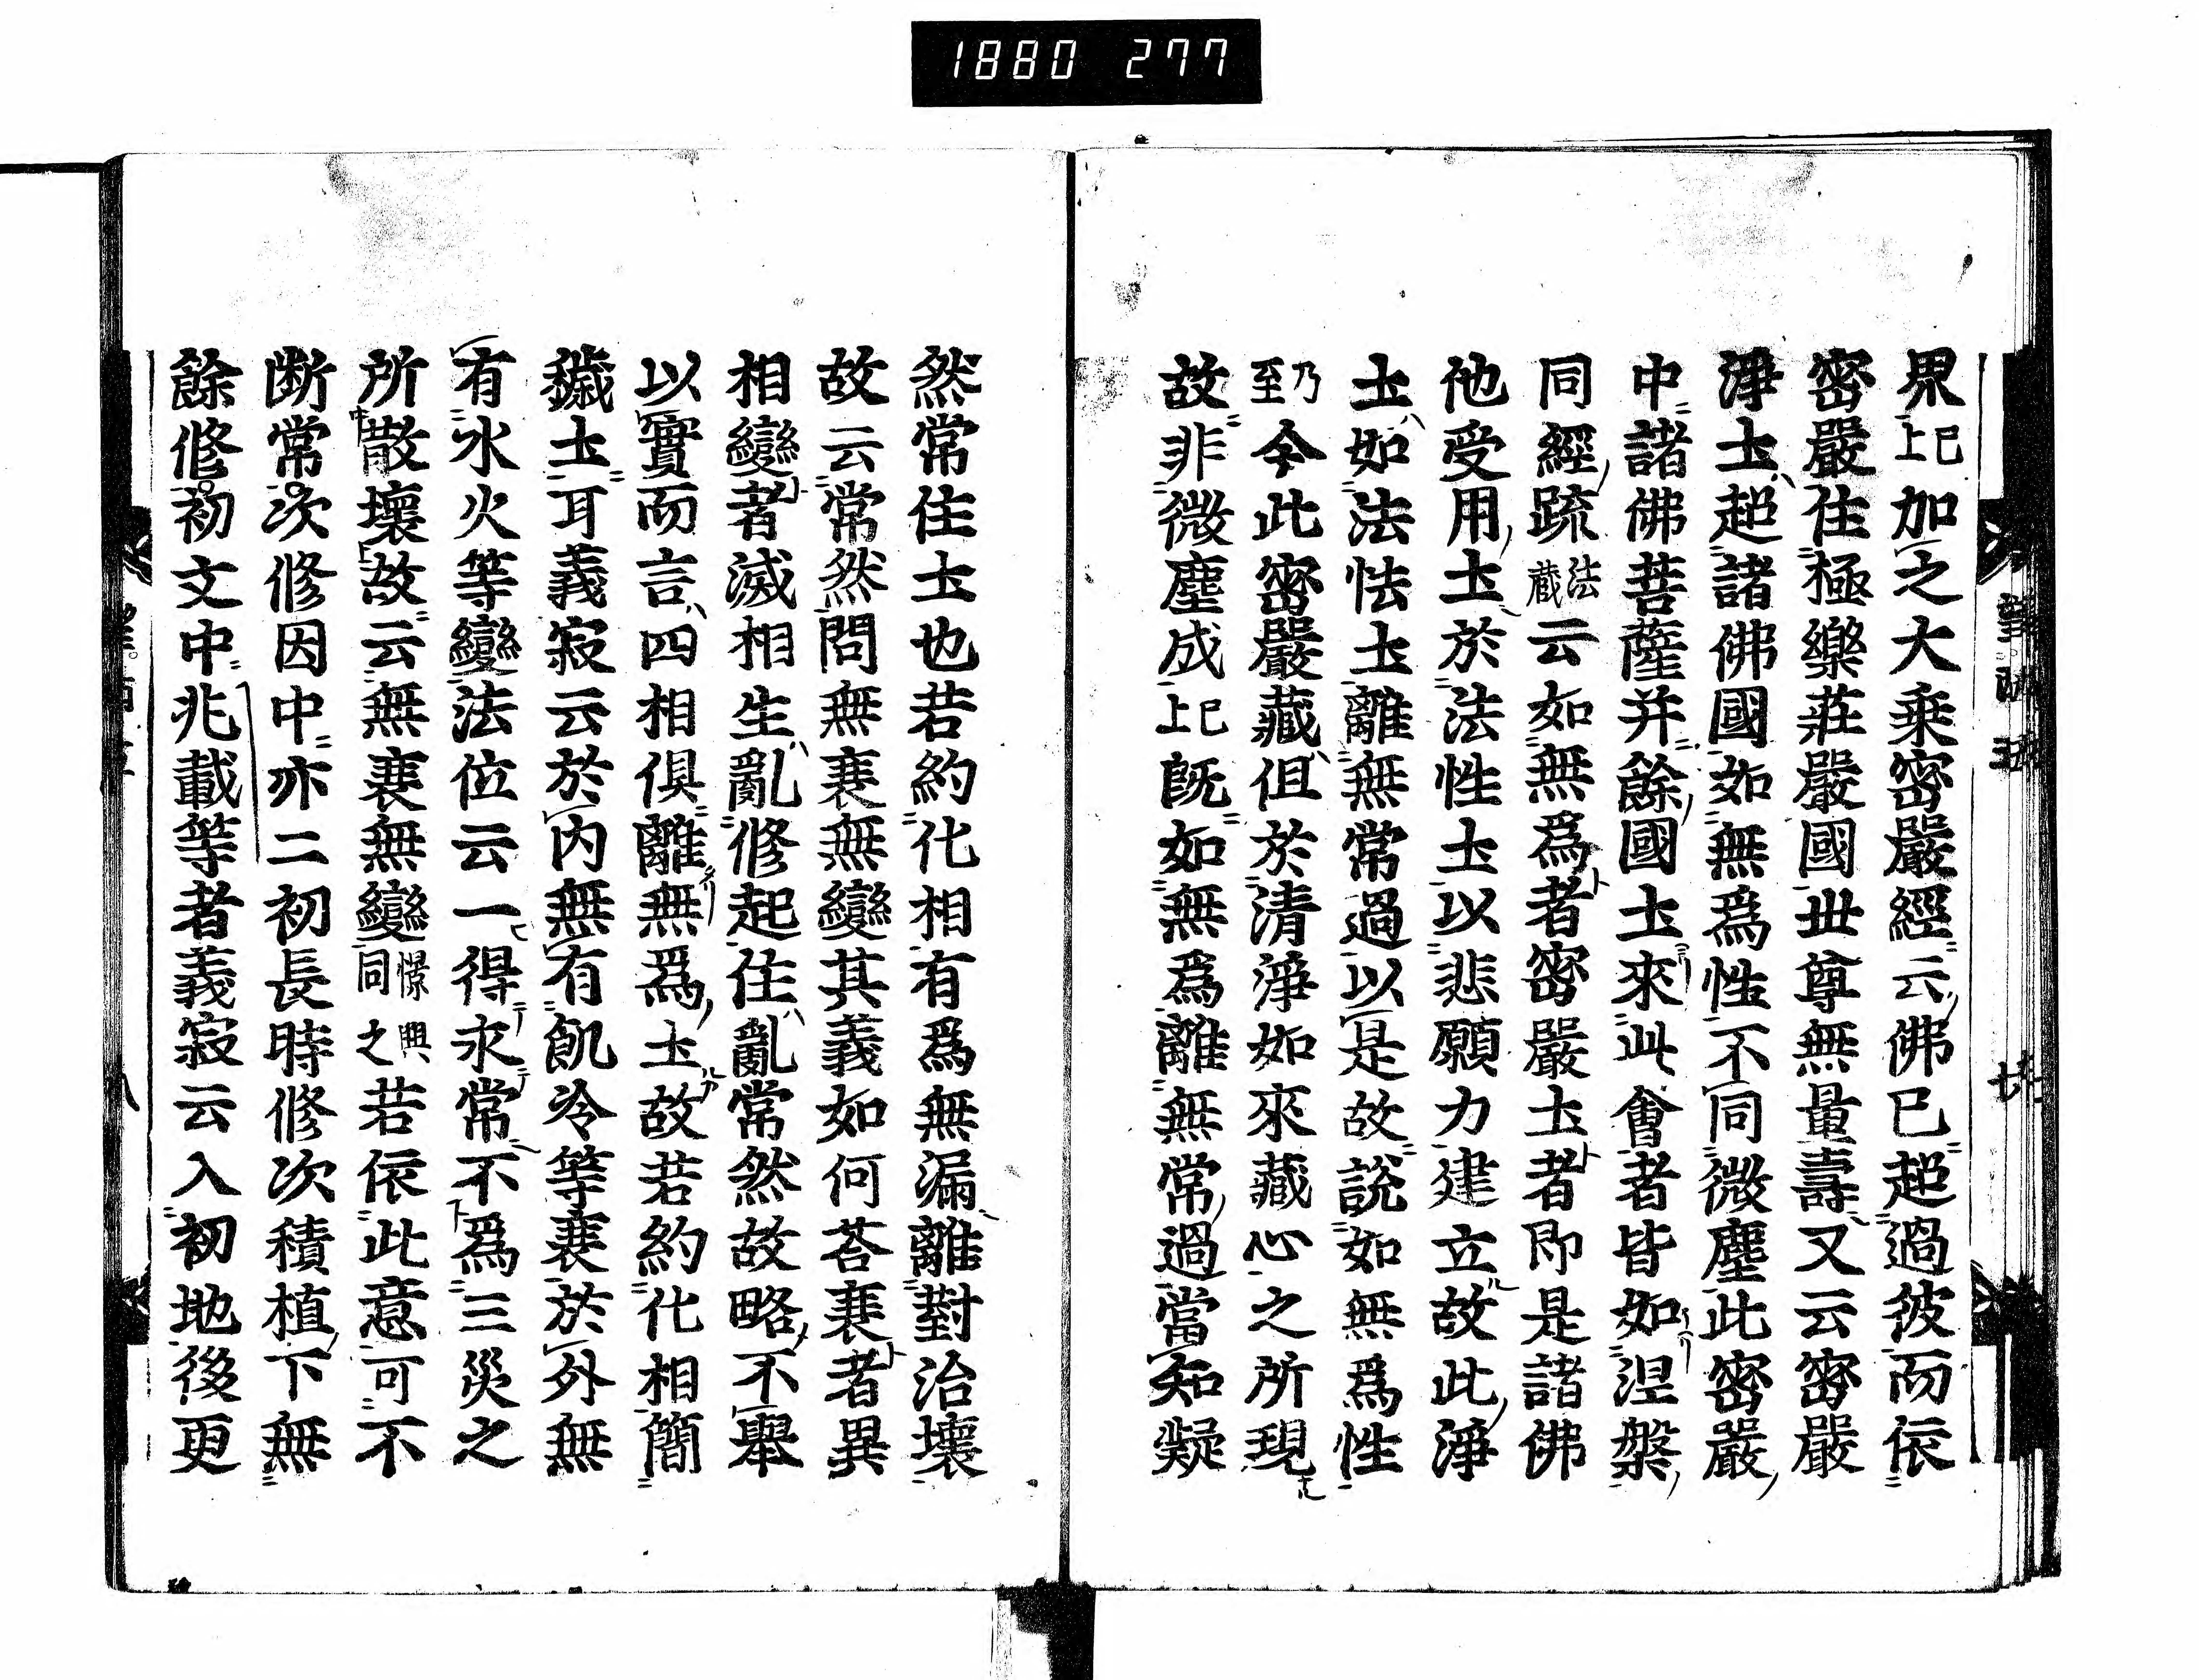 1880 277
界已上加之大乗密嚴經云佛已超過彼而依
密嚴住極樂莊嚴國世尊無量壽又云密嚴
淨土超諸佛國如無爲性不同微塵此密嚴
中諸佛菩薩并餘國土來此會者皆如涅槃
同經疏法藏云如無爲者密嚴土者即是諸佛
他受用土於法性土以悲願力建立故此淨
土如法性土離無常過以是故說如無爲性
乃至今此密嚴藏但於清淨如來藏心之所現
故非微塵成已上既如無爲離無常過當知凝
然常住土也若約化相有爲無漏離對治壞
故云常然問無衰無變其義如何荅衰者異
相變者滅相生亂修起住亂常然故略不舉
以實而言四相俱離無爲土故若約化相簡
穢土耳義寂云於内無有飢冷等衰於外無
有水火等變法位云一得永常不爲三災之
所散壞故云無衰無變憬興同之若依此意可不
断常次修因中亦二初長時修次積植下無
餘修初文中兆載等者義寂云入初地後更